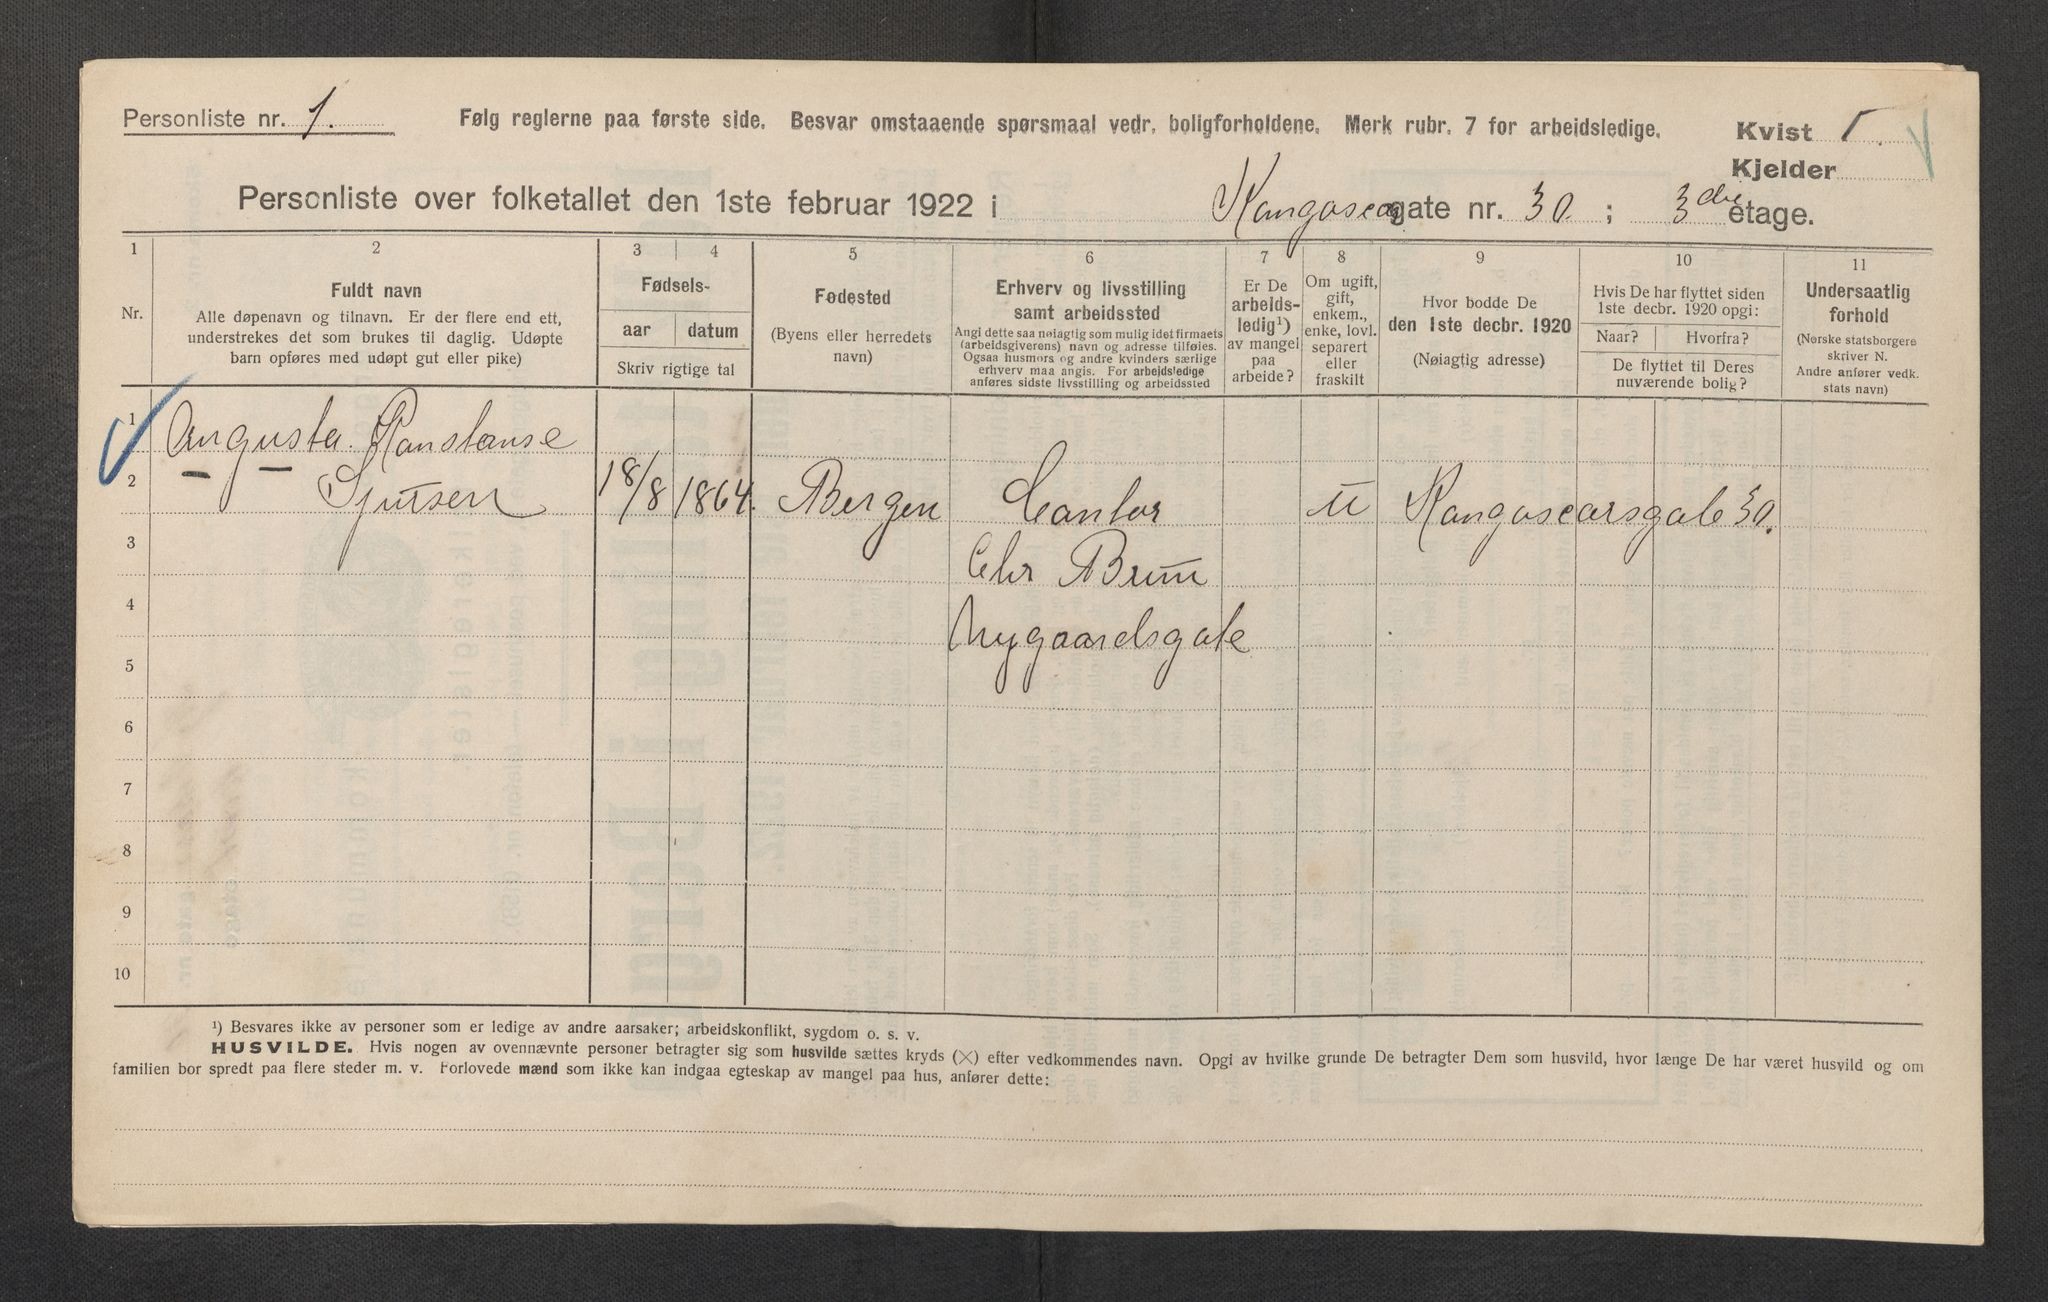 Personliste nr. 1.
Følg reglerne paa første side. Besvar omstaaende spørsmaal vedr. boligforholdene. Merk rubr. 7 for arbeidsledige.
Kvist 1
Kjelder
Personliste over folketallet den 1ste februar 1922 i Kongoscarsgate nr. 30. ; 3die etage.
1 2 3 4 5 6 7 8 9 10 11
Nr.
Fuldt navn
Alle døpenavn og tilnavn. Er der flere end ett,
understrekes det som brukes til daglig. Udøpte
barn opføres med udøpt gut eller pike)
Fødsels-
aar datum
Skriv rigtige tal
Fødested
(Byens eller herredets
navn)
Erhverv og livsstilling
samt arbeidssted
Angi dette saa nøiagtig som mulig idet firmaets
(arbeidsgiverens) navn og adresse tilføies.
Ogsaa husmors og andre kvinders særlige
erhverv maa angis. For arbeidsledige
anføres sidste livsstilling og arbeidssted
Er De
arbeids-
ledig¹)
av mangel
paa
arbeide?
Om ugift,
gift,
enkem.,
enke, lovl.
separert
eller
fraskilt
Hvor bodde De
den 1ste decbr. 1920
(Nøiagtig adresse)
Hvis De har flyttet siden
1ste decbr. 1920 opgi:
Naar? Hvorfra?
De flyttet til Deres
nuværende bolig?
Undersaatlig
forhold
(Norske statsborgere
skriver N.
Andre anfører vedk.
stats navn)
1 Augusta Konstanse
2 Sjursen 18/8 1864. Bergen Contor u Kongoscarsgate 30.
3 Chr Brun
4 Nygaardsgate
5
6
7
8
9
10
¹) Besvares ikke av personer som er ledige av andre aarsaker; arbeidskonflikt, sygdom o. s. v.
HUSVILDE. Hvis nogen av ovennævnte personer betragter sig som husvilde sættes kryds (×) efter vedkommendes navn. Opgi av hvilke grunde De betragter Dem som husvild, hvor længe De har været husvild og om
familien bor spredt paa flere steder m. v. Forlovede mænd som ikke kan indgaa egteskap av mangel paa hus, anfører dette: